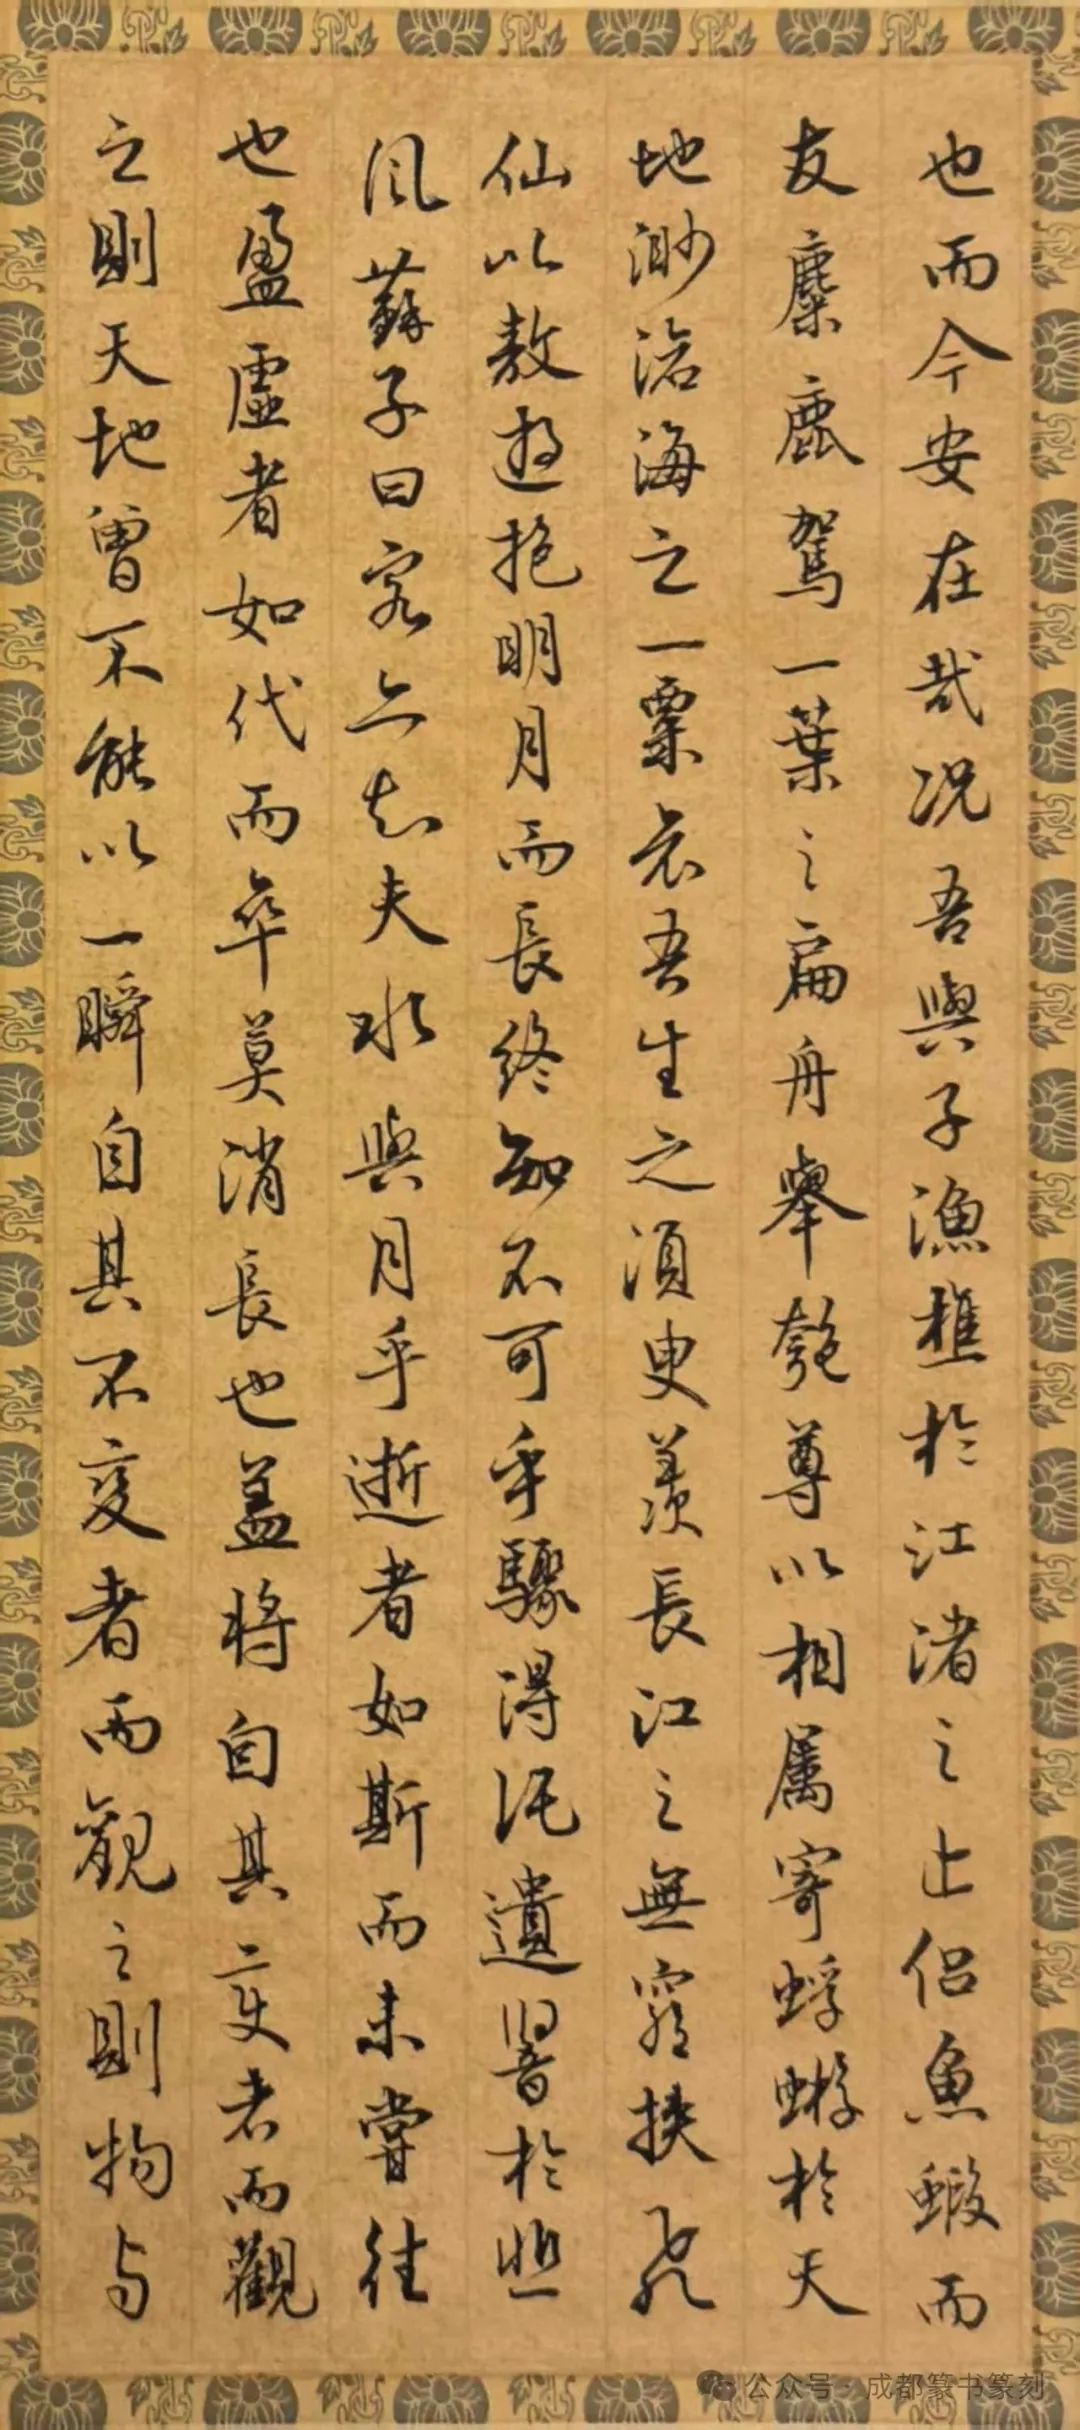 也而今安在哉况吾與子漁樵於江渚之上侣魚蝦而
友麋鹿駕一葉之扁舟舉匏尊以相属寄蜉蝣於天
地渺滄海之一粟哀吾生之須臾羨長江之無窮挟飛
仙以敖遊抱明月而長終知不可乎驟得託遺響於悲
風蘇子曰客亦知夫水與月乎逝者如斯而未嘗往
也盈虚者如代而卒莫消長也盖将自其變者而觀
之則天地曾不能以一瞬自其不变者而觀之則物与
公众号·成都篆书篆刻